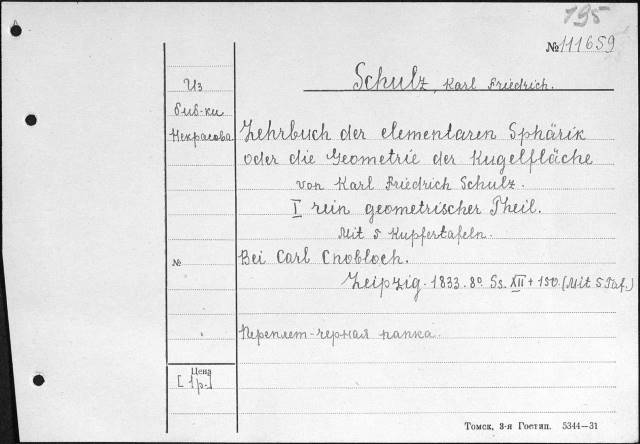 195
№111659
Schulz, Karl Friedrich.
Из
биб-ки
Некрасова
Lehrbuch der elementaren Sphärik
oder die Geometrie der Kugelfläche
von Karl Friedrich Schulz.
I rein geometrischer Theil.
Mit 5 Kupfertafeln.
№
Bei Carl Cnobloch.
Leipzig. 1833. 8º. Ss. XII + 150. (Mit 5 Taf.)
Переплет-черная папка.
Цена
[1р.]
Томск, 3-я Гостип. 5344—31